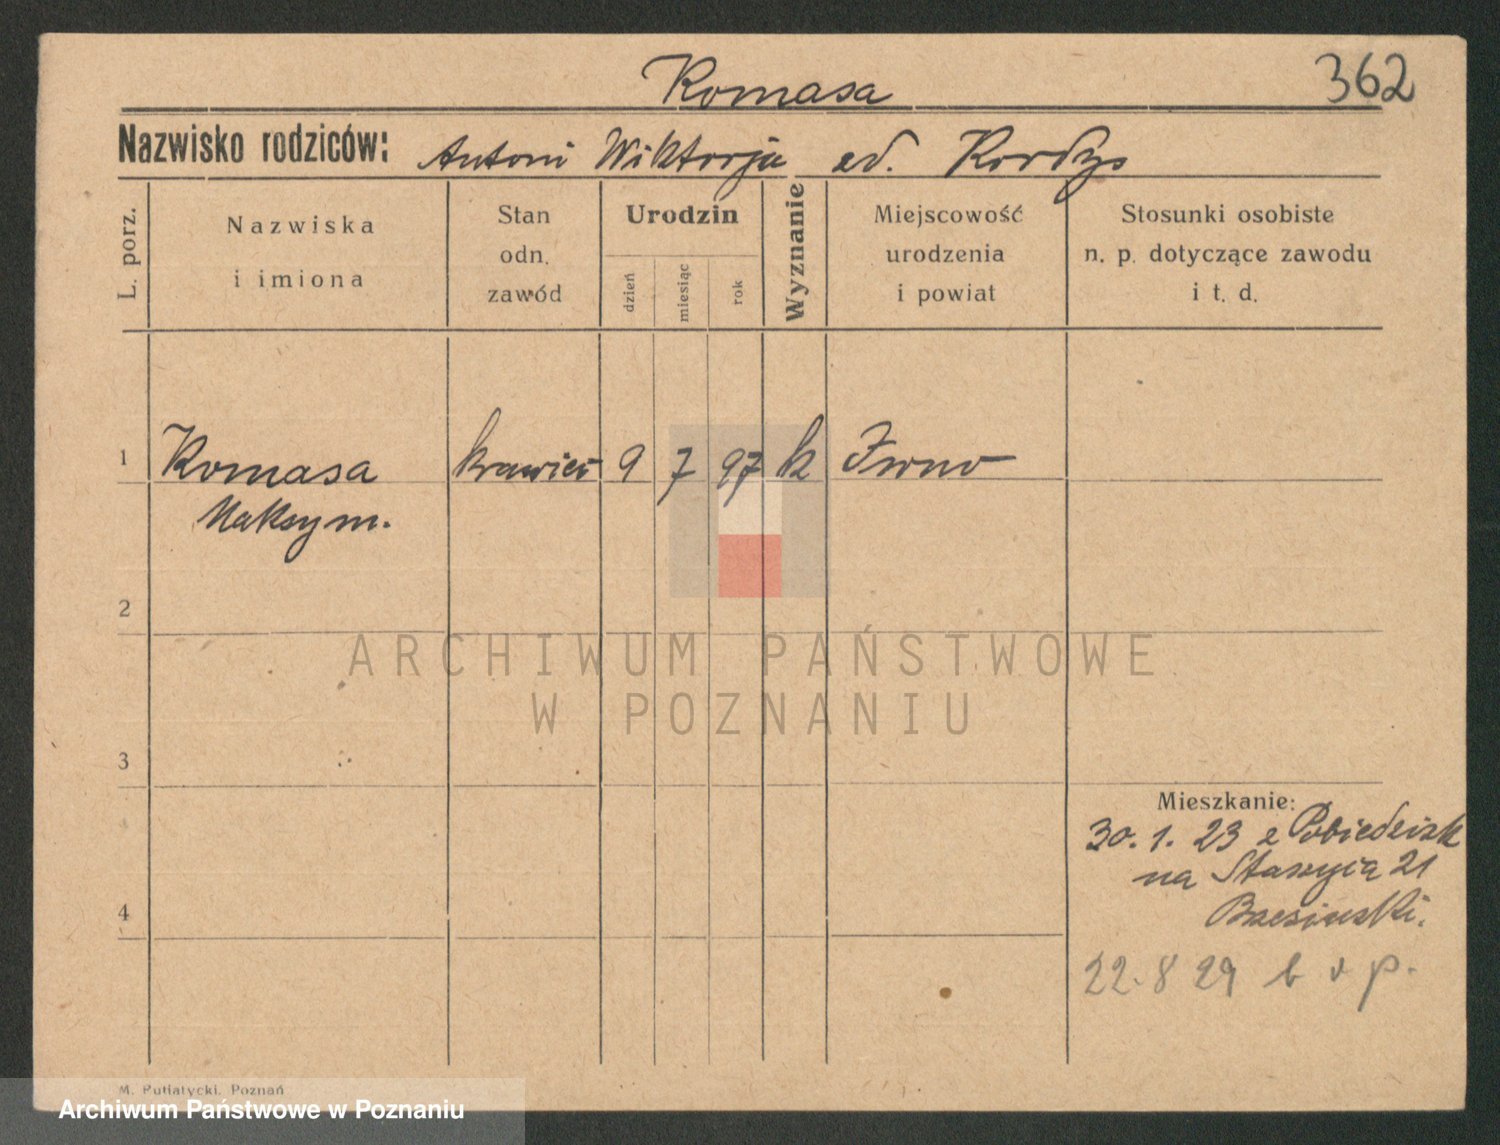 Komasa
362
Nazwisko rodziców: Antoni Wiktorja
L. porz.
Nazwiska
i imiona
Stan
odn.
zawód
Urodzin
dzień
miesiąc
rok
Wyznanie
Miejscowość
urodzenia
i powiat
Stosunki osobiste
n. p. dotyczące zawodu
i t. d.
1 Komasa krawiec 9 7 97 k Iwno
Maksym.
2
3
4
Mieszkanie:
30. 1. 23 z Pobiedzisk
na 21
22. 8 29 b v p.
ARCHIWUM PAŃSTWOWE
W POZNANIU
M. Putiatycki, Poznań
Archiwum Państwowe w Poznaniu